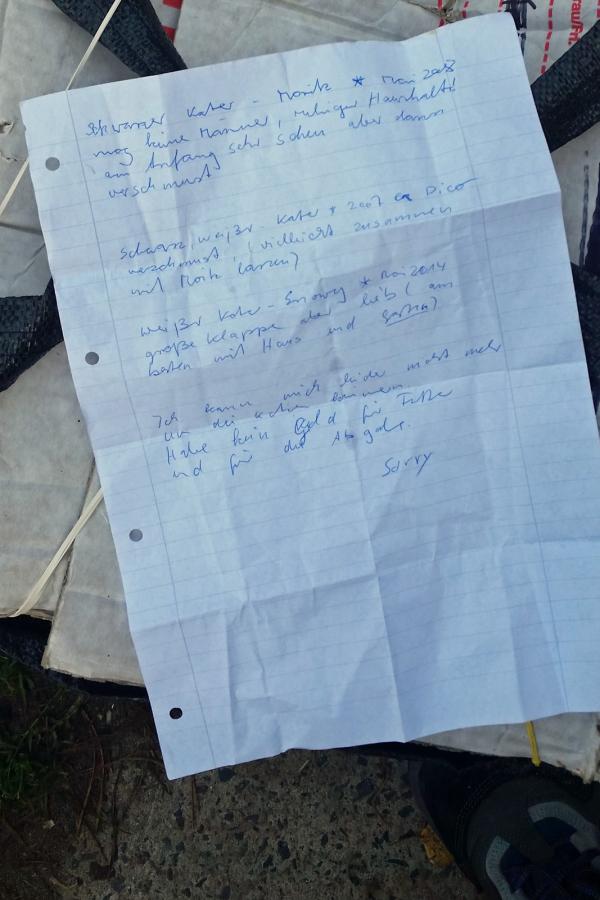 schwarzer Kater - Moritz * Mai 2008
mag keine Männer, ruhiger Haushalt!
am Anfang sehr scheu aber dann
verschmust
schwarz, weißer Kater * 2007 Dico
verschmust, (vielleicht zusammen
mit Moritz lassen)
weißer Kater - Snowy * Mai 2014
große Klappe aber lieb (am
besten mit Haus und Garten)
Ich kann mich leider nicht mehr
um die Katzen kümmern.
Habe kein Geld für Futter
und für die Abgabe.
Sorry